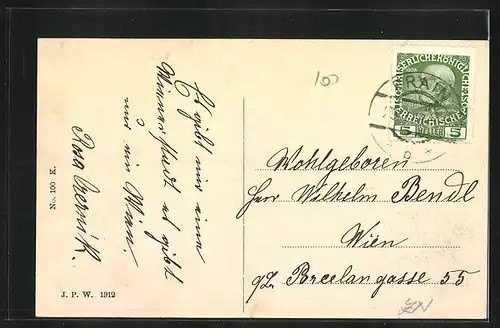 Es gibt nur eine
Wienerstadt es gibt
nur ein Wien.
No. 100 K.
J. P. W. 1912
100
KAISERLICHE KÖNIGLICHE
ÖSTERREICHISCHE
5 HELLER 5
Wohlgeboren
Herr Wilhelm Bendl
Wien
Porcelangasse 55